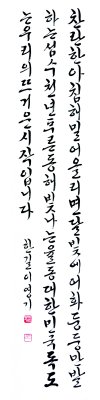 찬란한아침해밀어올리며달빛에어화둥둥만발
하는섬수처녀푸른동해빛나는율동대한민국독도
는우리의뜨거운시작입니다
한길이영기